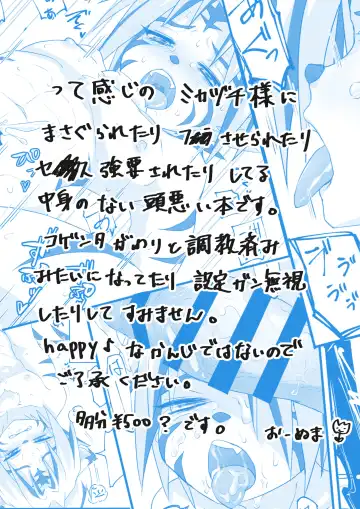 って感じの ミカヅチ様に
まさぐられたり させられたり
強要されたり してる
中身のない頭悪い本です。
コゲンタがわりと調教済み
みたいになってたり 設定ガン無視
したりして すみません。
happy♪ なかんじではないので
ご了承ください。
多分¥500？です。
おーぬま